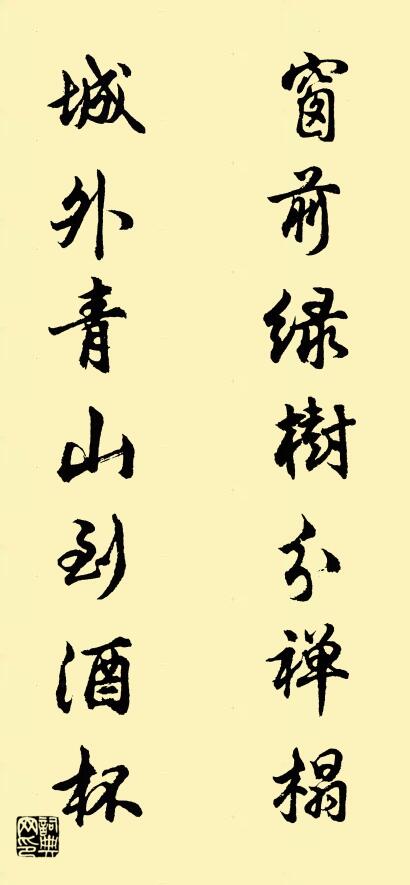 窗前绿樹分禅榻
城外青山到酒杯
詞典网印